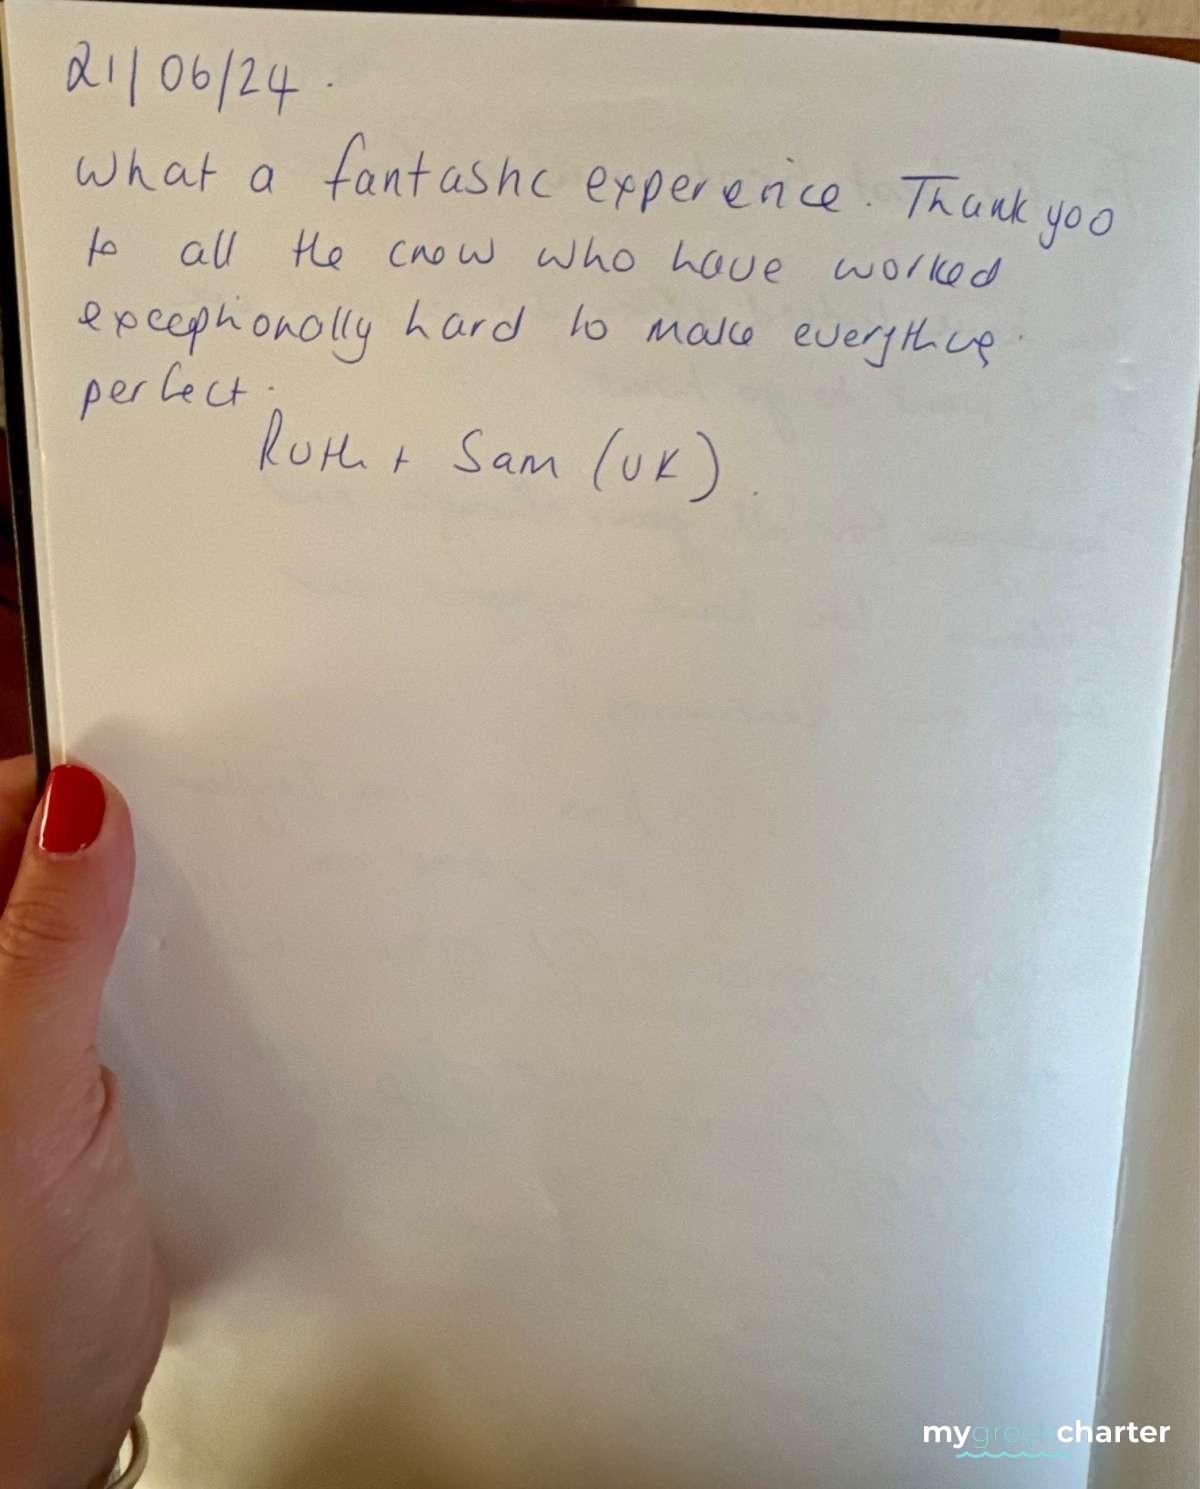 21/06/24.
What a fantastic experience. Thank you
to all the crew who have worked
exceptionally hard to make everything
perfect.
Ruth + Sam (UK).
mygreekcharter